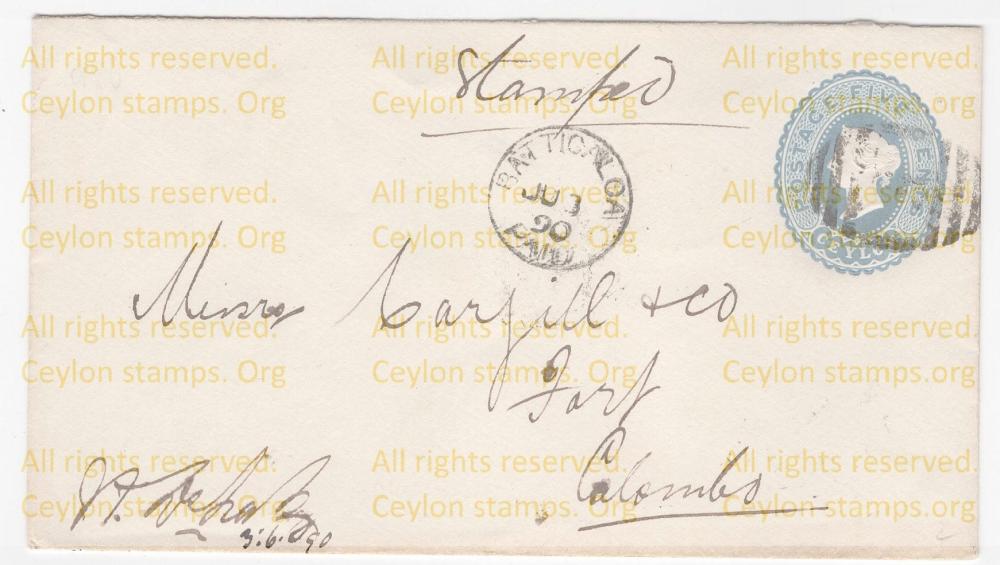 Stamped
POSTAGE FIVE CENTS
CEYLON
BATTICALOA
JU 3
90
Messrs Cargill & Co
Fort
Colombo
3.6.90
All rights reserved. All rights reserved. All rights reserved.
Ceylon stamps. Org Ceylon stamps. Org Ceylon stamps.org
All rights reserved. All rights reserved. All rights reserved.
Ceylon stamps. Org Ceylon stamps. Org Ceylon stamps.org
All rights reserved. All rights reserved. All rights reserved.
Ceylon stamps. Org Ceylon stamps. Org Ceylon stamps.org
All rights reserved. All rights reserved. All rights reserved.
Ceylon stamps. Org Ceylon stamps. Org Ceylon stamps.org